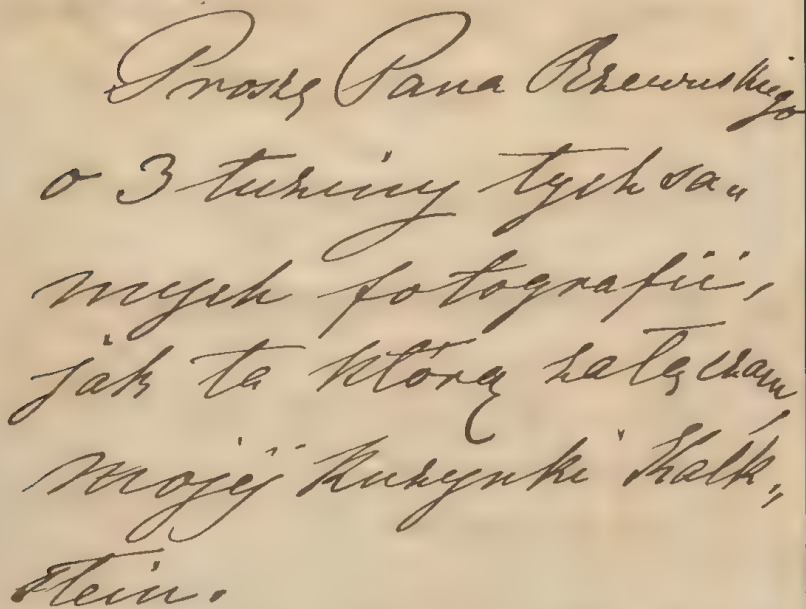 Proszę Pana Rzewuskiego
o 3 tuziny tych sa„
mych fotografii,
jak ta którą załączam,
mojéj Kuzynki Kalk„
stein.